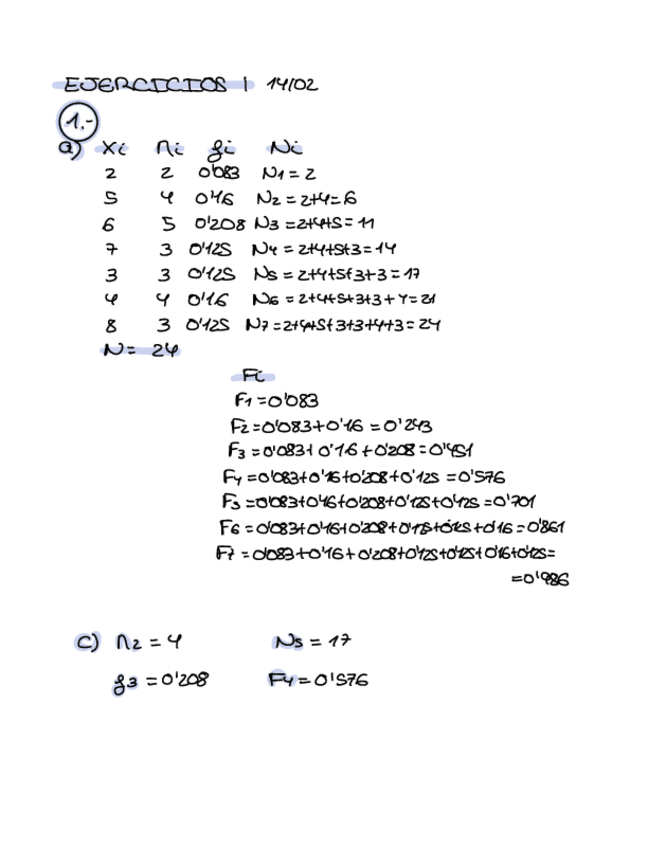 EJERCICIOS | 14/02
1.-
a) xi ni fi Ni
2 2 0'083 N1 = 2
5 4 0'16 N2 = 2+4=6
6 5 0'208 N3 = 2+4+5= 11
7 3 0'125 N4 = 2+4+5+3=14
3 3 0'125 N5 = 2+4+5+3+3=17
4 4 0'16 N6 = 2+4+5+3+3+4=21
8 3 0'125 N7 = 2+4+5+3+3+4+3=24
N= 24
Fi
F1 =0'083
F2=0'083+0'16 = 0'243
F3 =0'083+0'16+0'208=0'451
F4 =0'083+0'16+0'208+0'125 =0'576
F5 =0'083+0'16+0'208+0'125+0'125 =0'701
F6 =0'083+0'16+0'208+0'125+0'125+0'16=0'861
F7 =0'083+0'16+0'208+0'125+0'125+0'16+0'125=
=0'986
c) n2 = 4 N5 = 17
f3 =0'208 F4=0'576